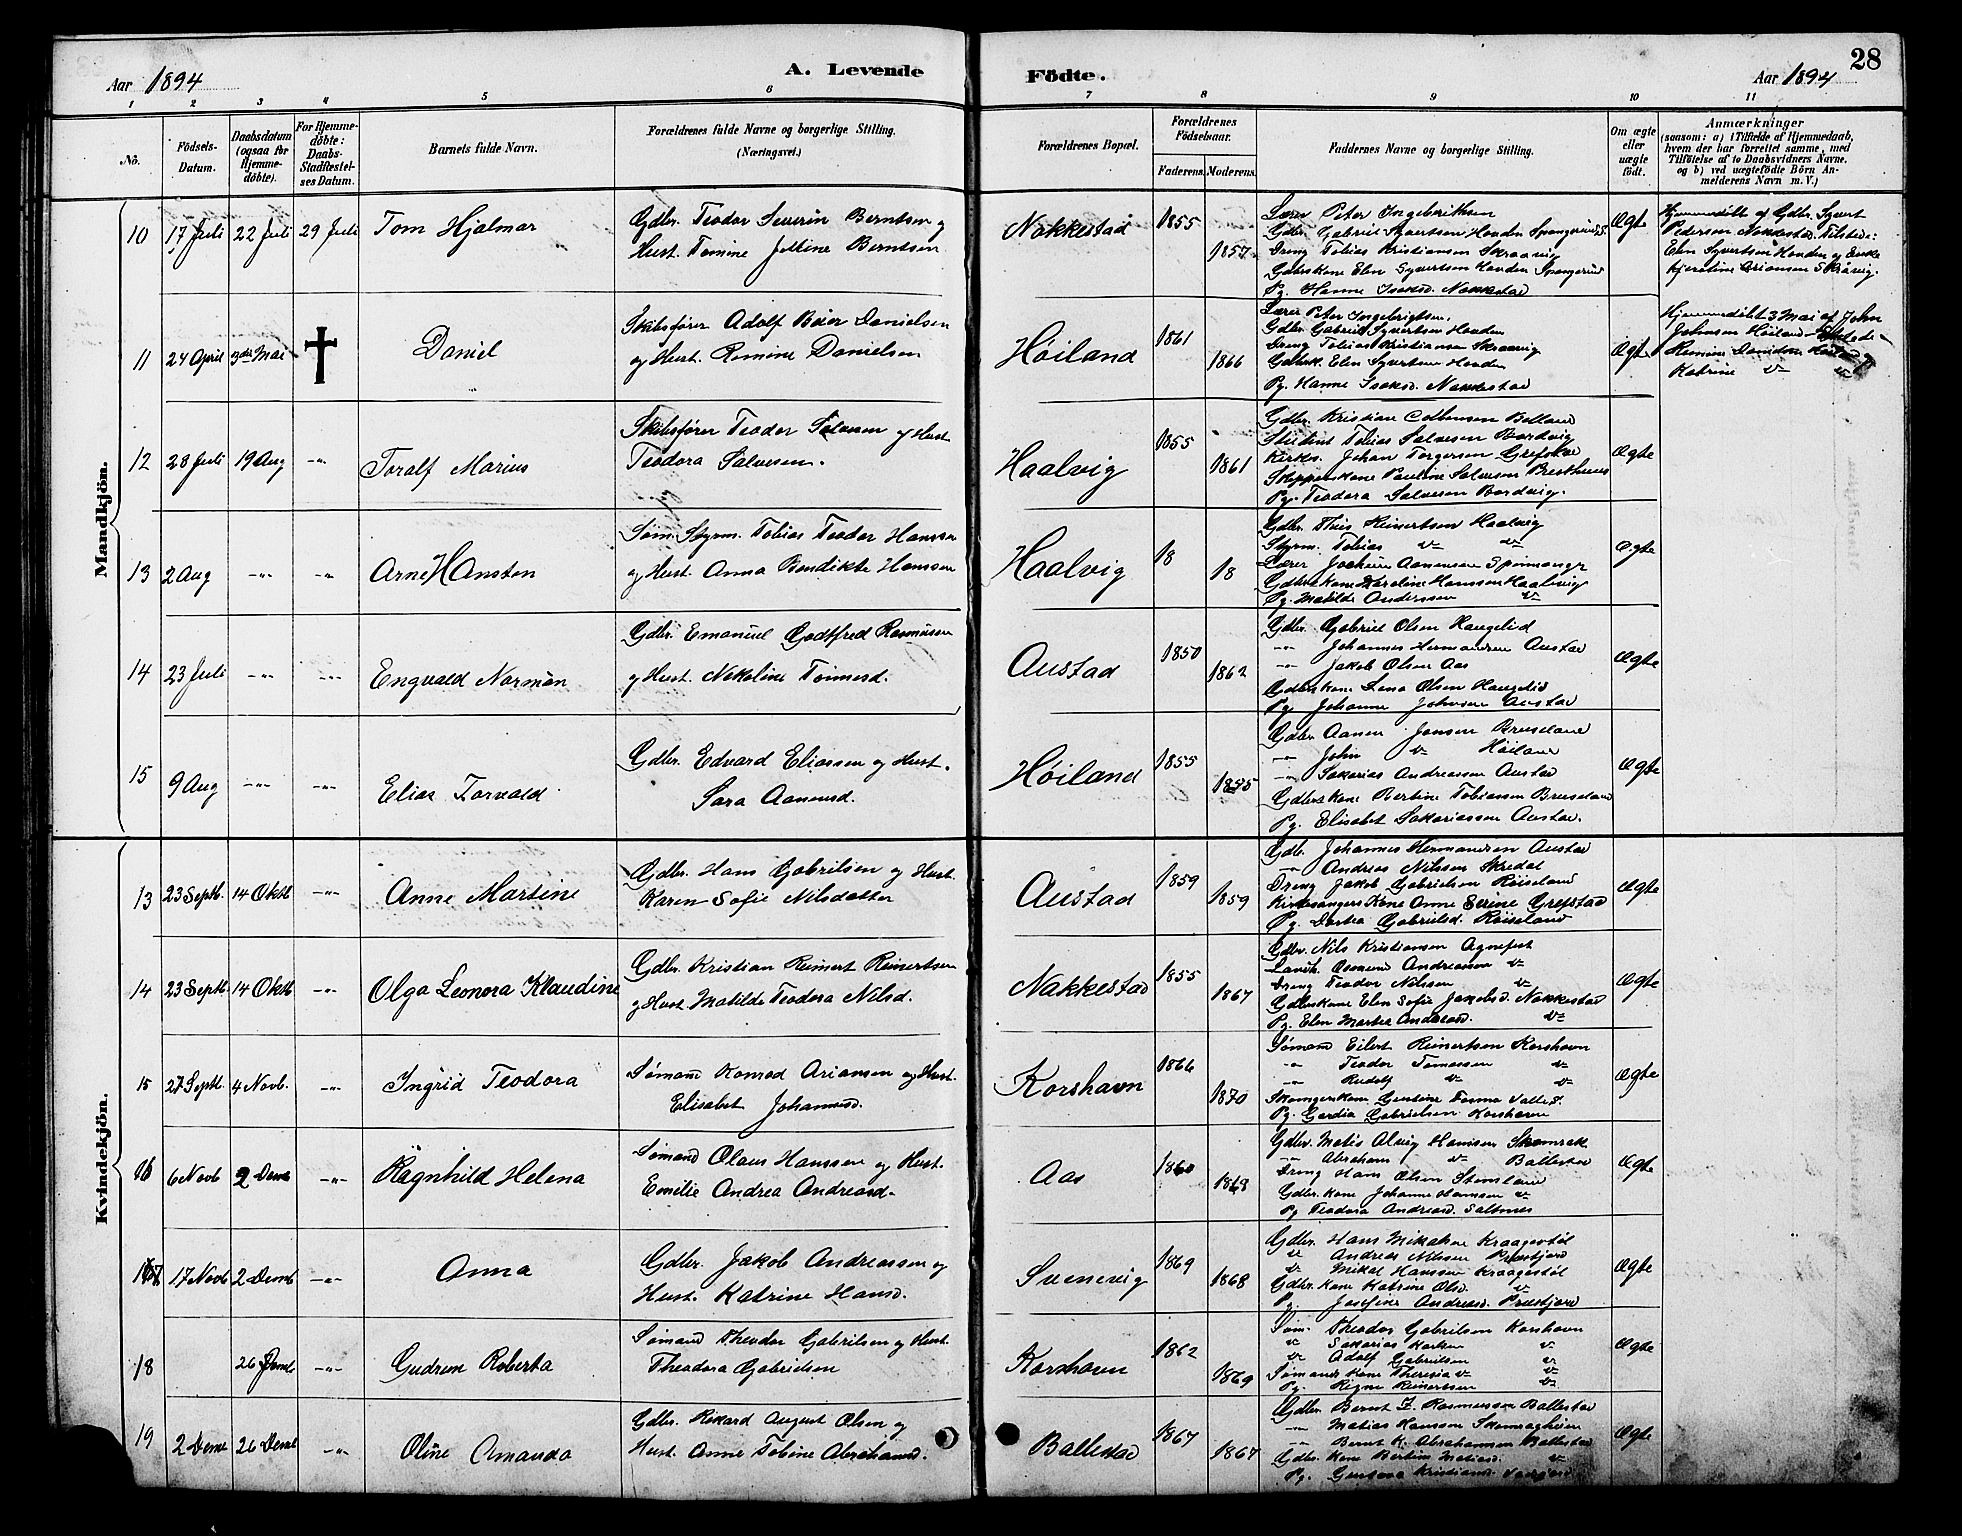 28
Aar 1894
A. Levende
Födte.
Aar 1894
1 2 3 4 5 6 7 8 9 10 11
No.
Födsels-Datum.
Daabsdatum (ogsaa for Hjemme-döbte).
For Hjemme-döbte: Daabs-Stadfæstel-ses Datum.
Barnets fulde Navn.
Forældrenes fulde Navne og borgerlige Stilling.
(Næringsvei.)
Forældrenes Bopæl.
Forældrenes Födselsaar.
Faderens. Moderens.
Faddernes Navne og borgerlige Stilling.
Om ægte eller uægte født.
Anmærkninger
(saasom: a) i Tilfælde af Hjemmedaab,
hvem der har forrettet samme, med
Tilføielse af to Daabsvidners Navne.
og b) ved uægtefödte Börn An-
melderens Navn m. V.)
Mandkjön.
10 17 Juli 22 Juli 29 Juli Tom Hjalmar
Gdbr. Teodor Severin Berntsen og
Hust. Tomine Jettine Berntsen
Nakkestad 1855 1857
Lærer Peter Ingebrithsen
Gdbr. Gabriel Syvertsen Houden
Dreng Tobias Kristiansen Skraavig
Gdbrskone Elen Syvertsen Houden Spangerid
Pg. Hanne Isaksd. Nakkestad
Ægte
Hjemmedöbt af Gdbr. Syvert
Pedersen Nakkestad. Tilstede:
Elen Syvertsen Houden og Enke
11 24 April 3die Mai Daniel
Skibsfører Adolf Beier Danielsen
og Hust. Romine Danielsen
Höiland 1861 1866
Lærer Peter Ingebrigtsen.
Gdbr. Gabriel Syvertsen Houden
Dreng Tobias Kristiansen Skraavig
Gdbrsk. Elen Syvertsen Houden
Pg. Hanne Isaksd. Nakkestad
Ægte
Hjemmedöbt 3 Mai af John
Johnsen Höiland
Katrine
12 28 Juli 19 Aug -"- Toralf Marius
Skibsfører Teodor Salvesen og Hust
Teodora Salvesen.
Haalvig 1855 1861
Gdbr. Kristian
Tobias Salvesen Bordvig
Kirks. Johan Torgersen Grefstad
Skipperskone Pauline Salvesen
Pg. Teodora Salvesen Bordvig.
Ægte
13 2 Aug -"- -"- Arne Hansten
Søm. Styrm. Tobias Teodor Hanssen
og Hust. Anna Bendikte Hanssen
Haalvig 18 18
Gdbr. Reinertsen Haalvig
Styrm. Tobias
Lærer Jochum Aanensen
Gdbrskone Karoline Hanssen Haalvig
Pg. Matilde Anderssen
Ægte
14 23 Juli -"- -"- Engvald Norman
Gdbr. Emanuel Godtfred Rasmussen
og Hust. Nekoline Tönnesd.
Austad 1850 1862
Gdbr. Gabriel Olsen Haugelid
-"- Johannes Hermandsen Austad
-"- Jakob Olsen Aas
Gdbrskone Lena Olsen Haugelid
Pg. Johanne Johnsen Austad
Ægte
15 9 Aug -"- -"- Elias Torvald
Gdbr. Edvard Eliassen og Hust.
Sara Aanensd.
Höiland 1855 1855
Gdbr. Aanen Jonsen Bruseland
-"- John Höiland
-"- Sakarias Andreassen Austad
Gdbrskone Bertine Tobiassen Bruseland
Pg. Elisabet Sakariassen Austad.
Ægte
Kvindekjön.
13 23 Septb. 14 Oktb -"- Anne Martine
Gdbr. Hans Gabrilsen og Hust.
Karen Sofie Nilsdatter
Austad 1859 1859
Gdbr. Johannes Hermandsen Austad
-"- Andreas Nilssen Skredal
Dreng Jakob Gabrielsen Röiseland
Kirkesangers Kone Anne Serine Grefstad
Pg. Dortea Gabrielsd. Röiseland
Ægte
14 23 Septb. 14 Oktb -"- Olga Leonora Klaudine
Gdbr. Kristian Reinert Reinertsen
og Hust Matilde Teodora Nilsd.
Nakkestad 1855 1867
Gdbr. Nils Kristiansen Agnefest
Andreassen
Dreng Teodor Nilssen
Gdbrskone Elen Sofie Jakobsd. Nakkestad
Pg. Elen Martea Andreasd.
Ægte
15 27 Septb. 4 Novb. -"- Ingrid Teodora
Sømand Konrad Ariansen og Hust.
Elisabet Johannesd.
Korshavn 1866 1870
Sømand Eilert Reinertsen Korshavn
-"- Teodor Tomassen
-"- Rudolf
Pg. Gabrielsen Korshavn
Ægte
16 6 Novb 2 Demb -"- Ragnhild Helena
Sømand Olaus Hanssen og Hust.
Emilie Andrea Andreasd.
Aas 1860 1868
Gdbr. Matis Alvig Hansen Skomrak
-"- Abraham Ballestad
Dreng Hans Olsen
Gdbr. Kone Johanne Hansen
Pg Teodora Andreasd. Saltnes
Ægte
17 17 Novb 2 Demb -"- Anna
Gdbr. Jakob Andreassen og
Hust. Katrine Hansd.
Svenevig 1869 1868
Gdbr. Hans Mikalsen Kraagestöl
Andreas Nilssen Præstjord
Mikal Hanssen Kraagestöl
Gdbr. Kone Katrine Olsd.
Pg. Josefine Andreasd. Præstjord
Ægte
18 26 Demb -"- Gudrun Roberta
Sømand Theodor Gabrielsen og Hust.
Theodora Gabrielsen
Korshavn 1862 1869
Søm. Theodor Gabrielsen Korshavn
Sakarias
Adolf Gabrielsen
Sømands Kone Theresia
Pg. Reinertsen
Ægte
19 2 Deme 26 Deme -"- Oline Amanda
Gdbr. Rikard August Olsen og
Hust. Anne Tobine Abrahamsd.
Ballestad 1867 1867
Gdbr. Bernt Z. Rasmussen Ballestad
-"- Matias Hanssen
-"- Bernt K. Abrahamsen Ballestad
Gdbr. Kone Bertine Matiasd.
Pg. Gustava Kristiansd.
Ægte